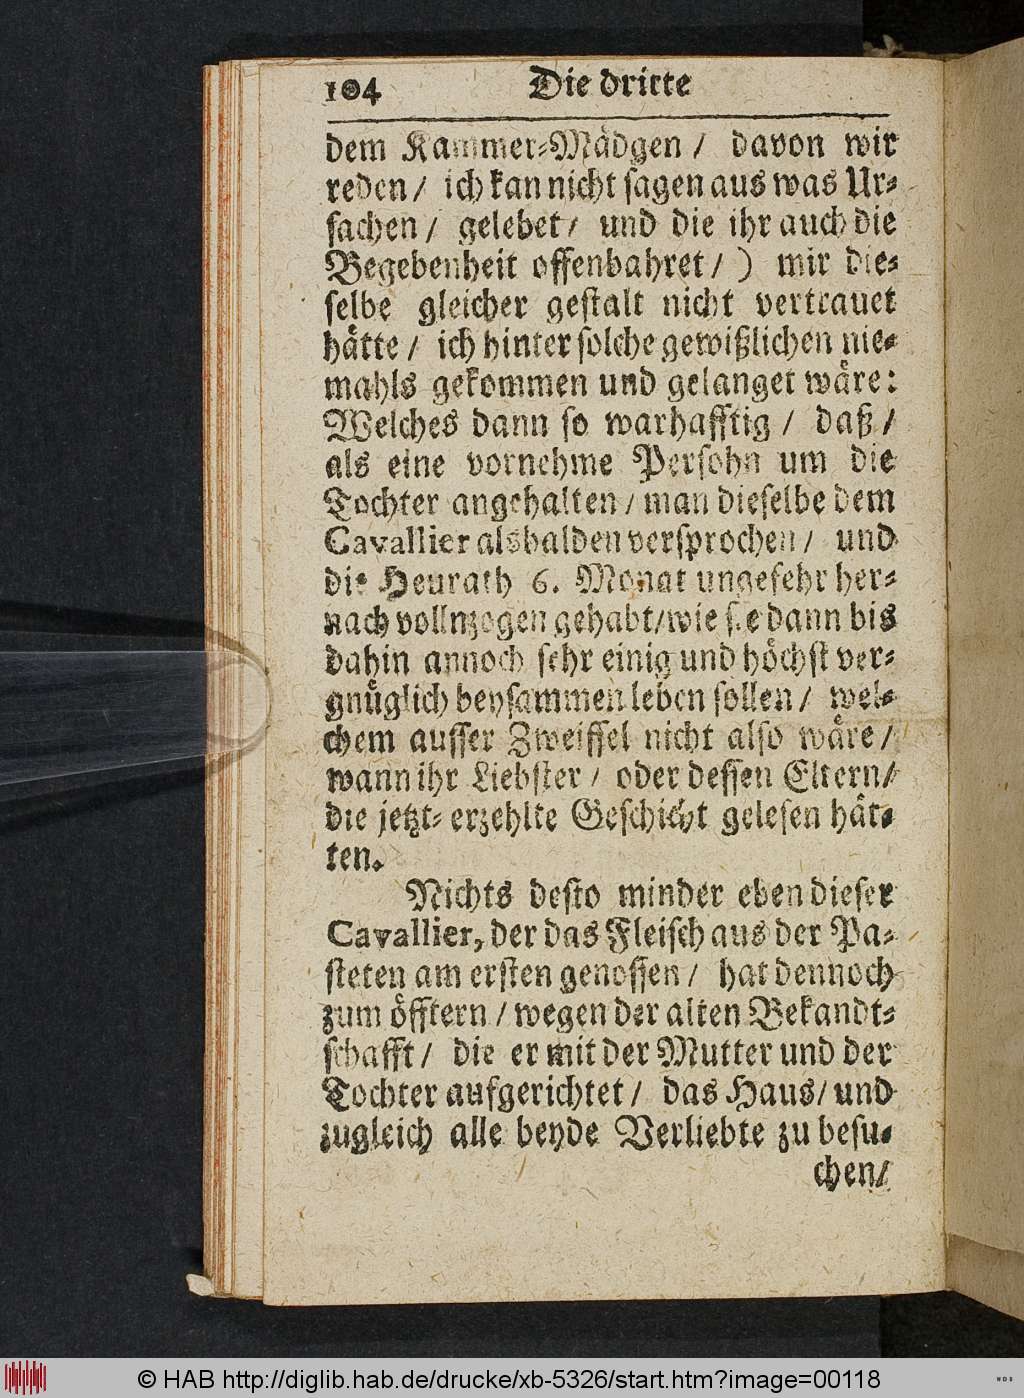 104 Die dritte
dem Kammer-Mädgen / davon wir
reden / ich kan nicht sagen aus was Ur-
sachen / gelebet / und die ihr auch die
Begebenheit offenbahret / ) mir die-
selbe gleicher gestalt nicht vertrauet
hätte / ich hinter solche gewißlichen nie-
mahls gekommen und gelanget wäre:
Welches dann so warhafftig / daß /
als eine vornehme Persohn um die
Tochter angehalten / man dieselbe dem
Cavallier alsbalden versprochen / und
die Heurath 6. Monat ungefehr her-
nach vollnzogen gehabt / wie sie dann bis
dahin annoch sehr einig und höchst ver-
gnüglich beysammen leben sollen / wel-
chem ausser Zweiffel nicht also wäre /
wann ihr Liebster / oder dessen Eltern /
die jetzt-erzehlte Geschicht gelesen hät-
ten.
Nichts desto minder eben dieser
Cavallier, der das Fleisch aus der Pa-
steten am ersten genossen / hat dennoch
zum öfftern / wegen der alten Bekandt-
schafft / die er mit der Mutter und der
Tochter aufgerichtet / das Haus / und
zugleich alle beyde Verliebte zu besu-
chen /
© HAB http://diglib.hab.de/drucke/xb-5326/start.htm?image=00118